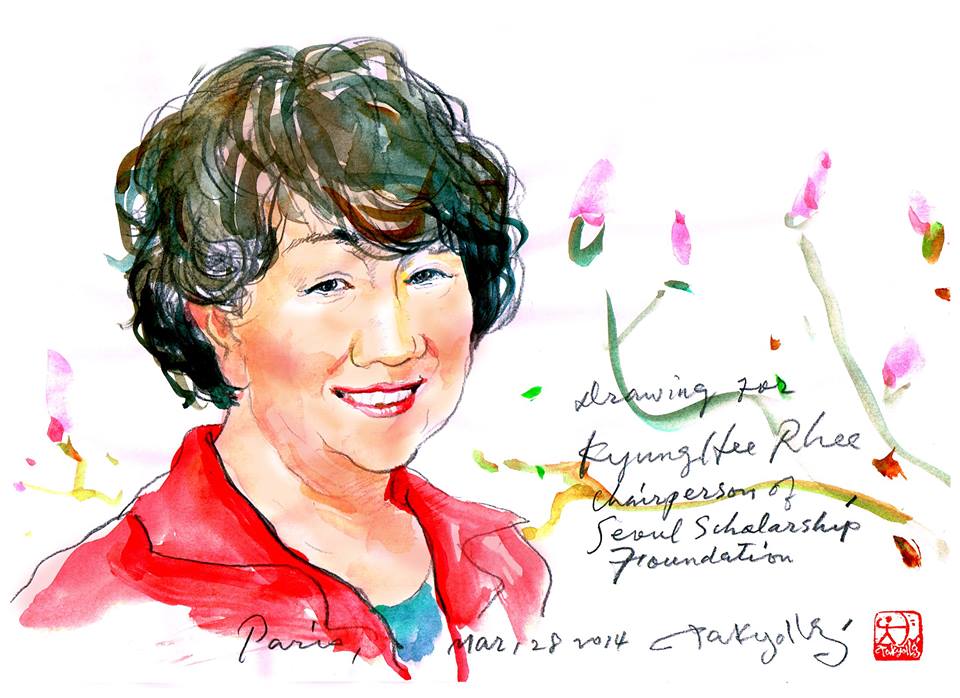 Drawing for
KyungHee Rhee
chairperson of
Seoul Scholarship
Foundation
Paris, Mar, 28 2014